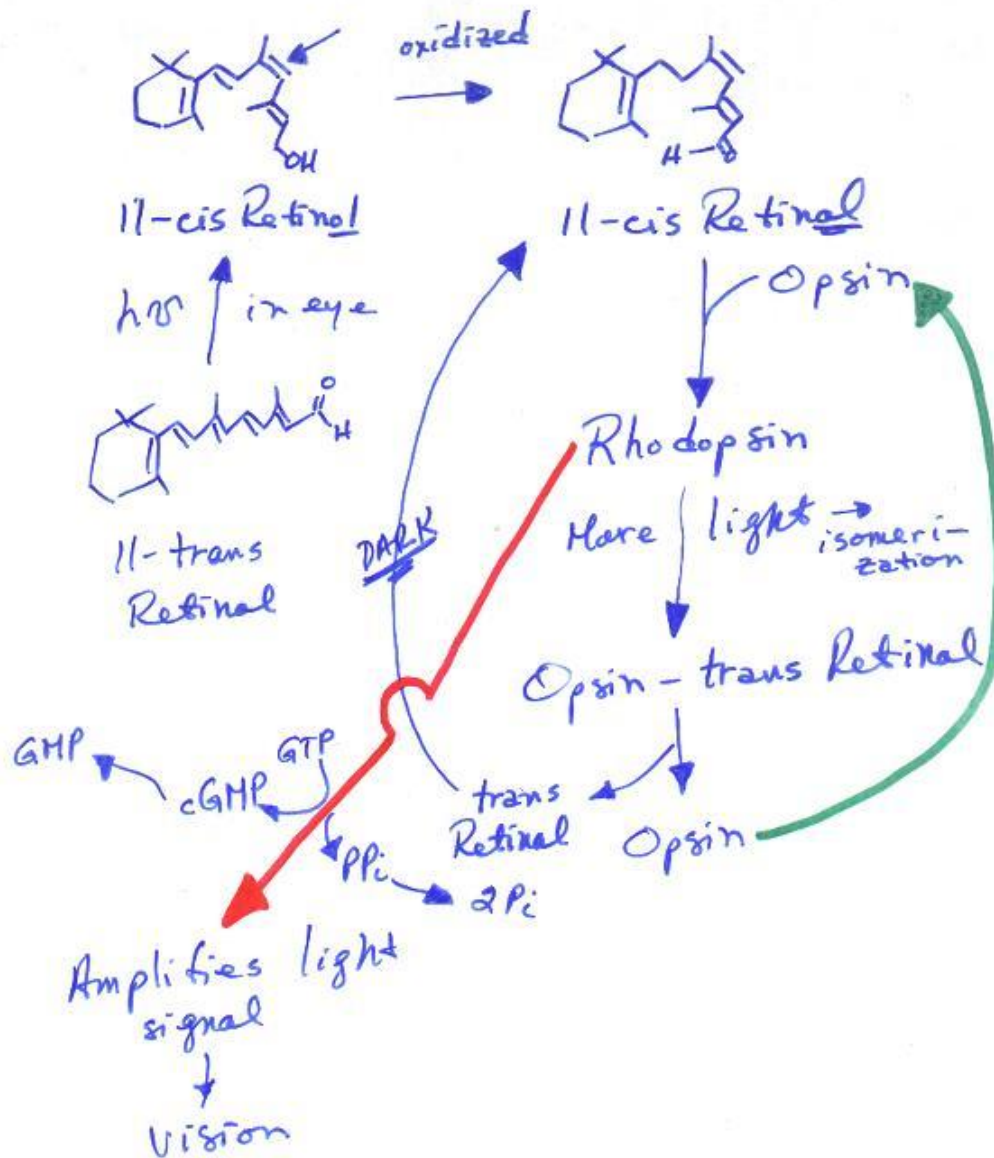 oxidized
OH
H
O
11-cis Retinol
11-cis Retinal
hν
in eye
Opsin
O
H
Rhodopsin
11-trans
Retinal
DARK
More
light →
isomeri-
zation
Opsin - trans Retinal
GMP
cGMP
GTP
trans
Retinal
Opsin
PPi
2Pi
Amplifies light
signal
Vision